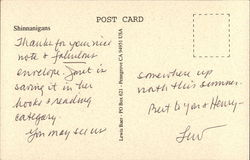 POST CARD
Shinnanigans
Thanks for your nice
note & fabulous
envelope. Janet is
saving it in her
books & reading
category.
You may see us
Lewis Baer · PO Box 621 · Penngrove CA 94951 USA
somewhere up
north this summer.
Best to you & Henry–
Lew